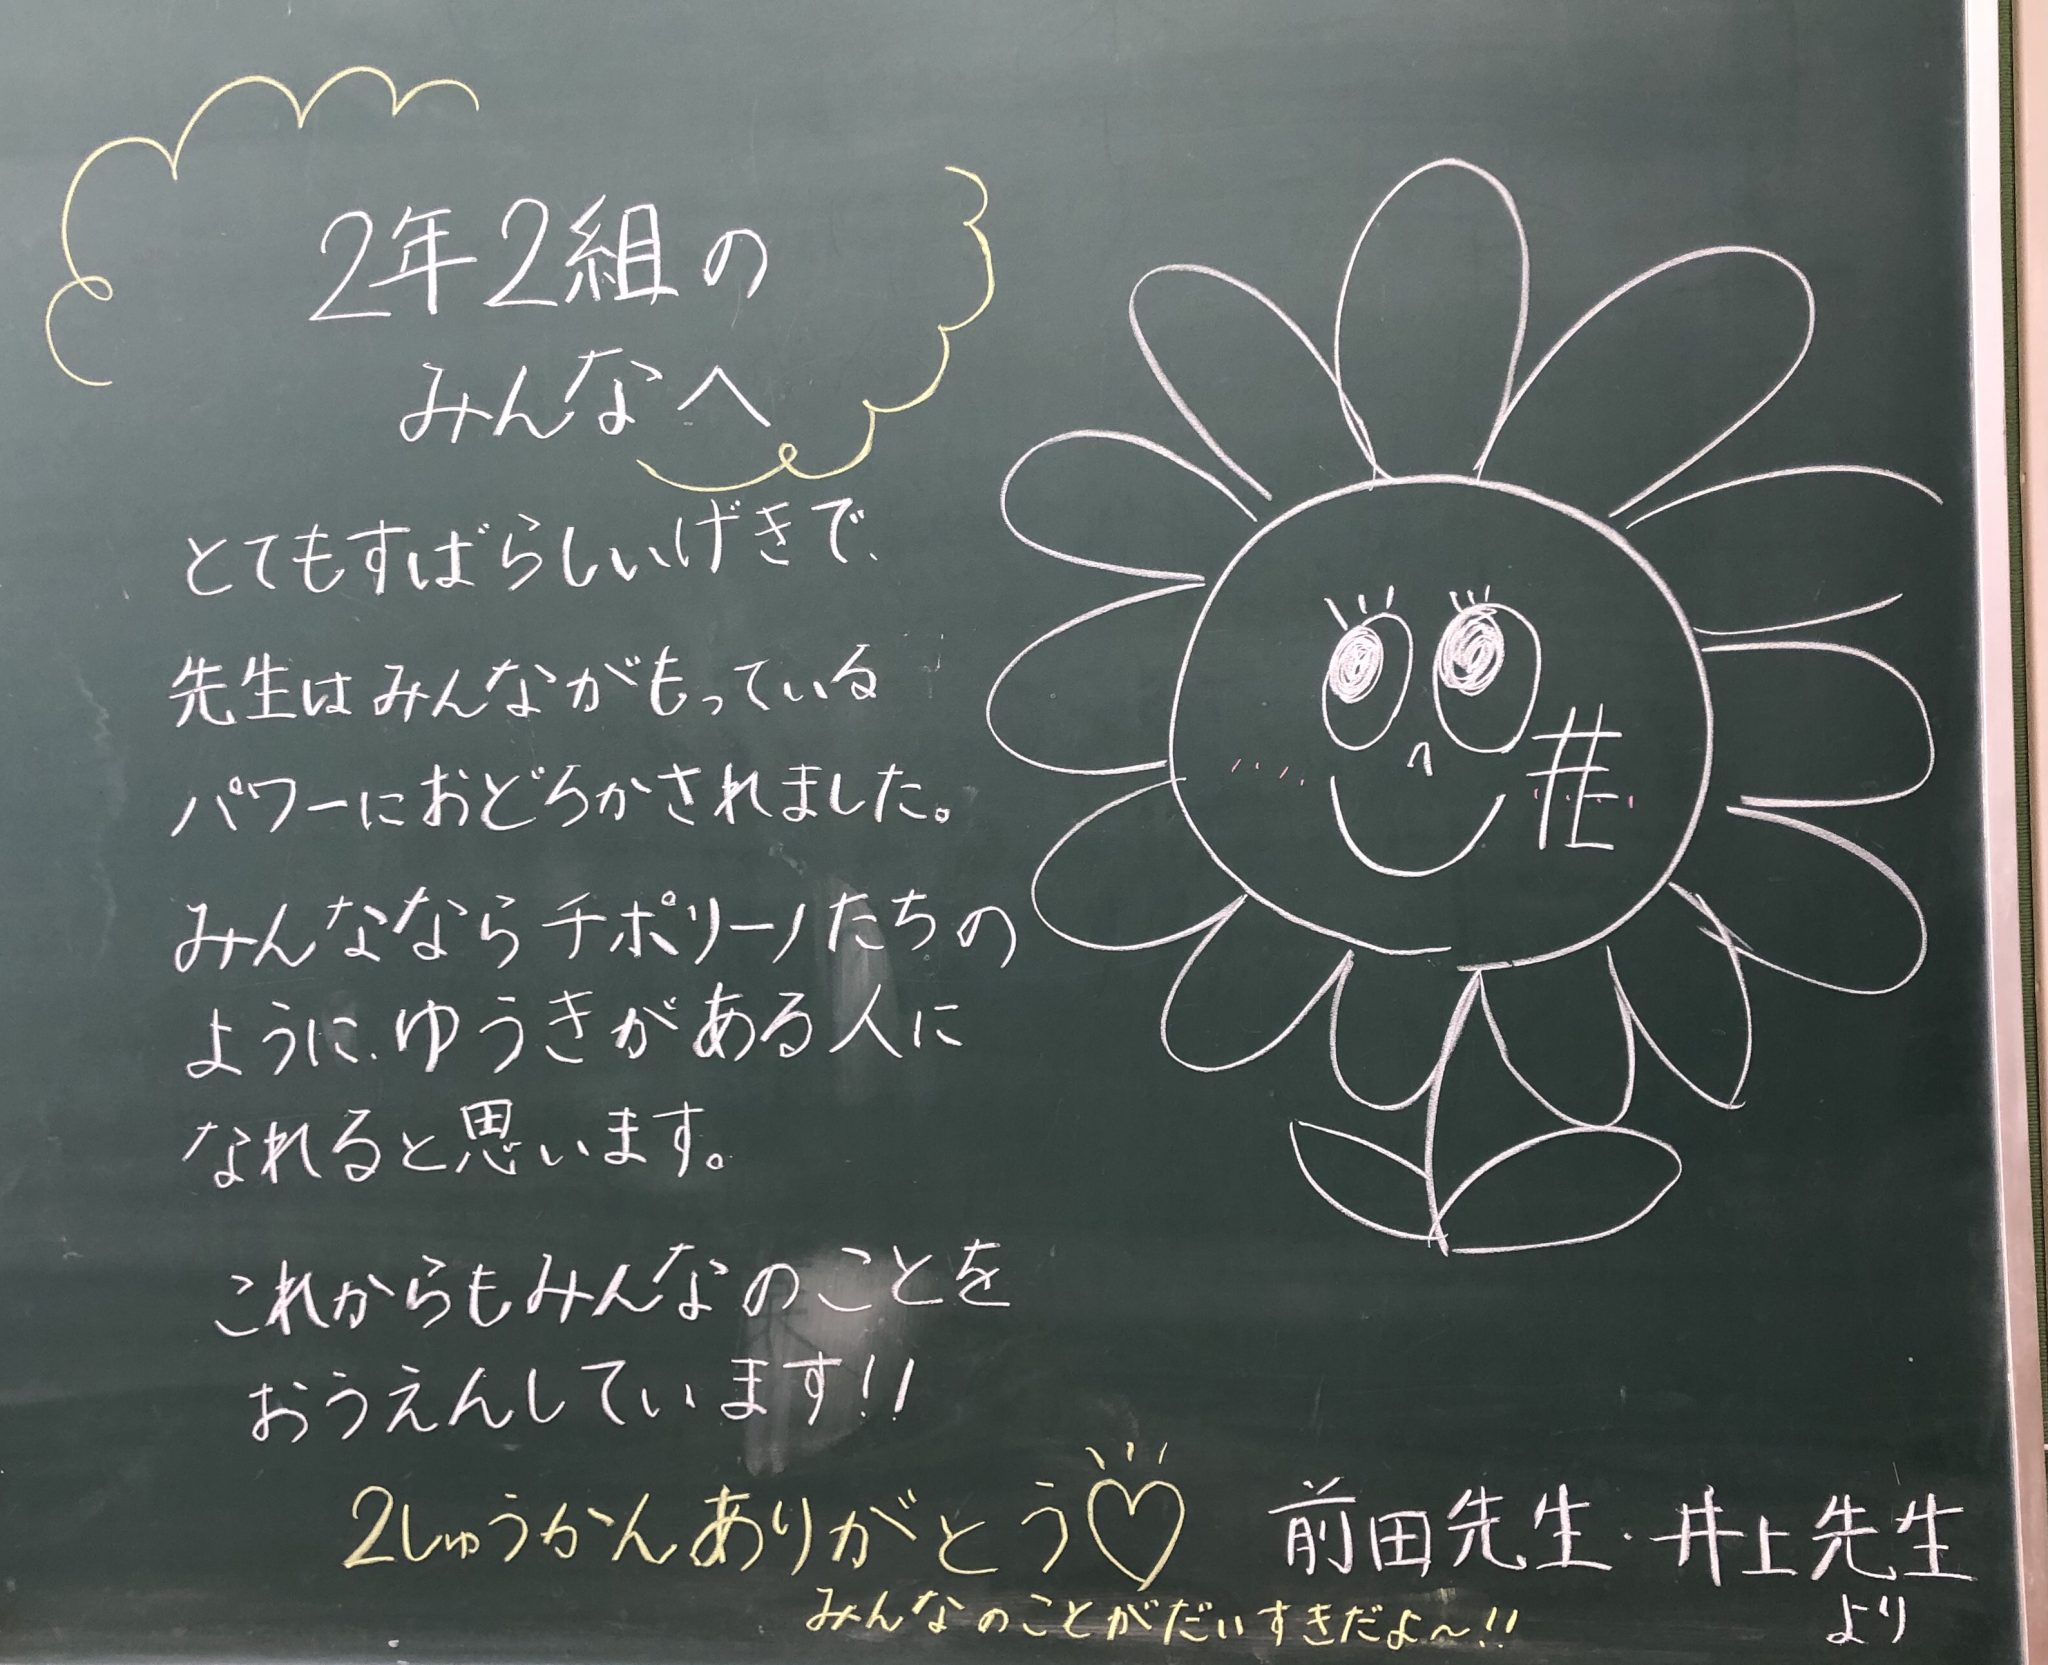 2年2組の
みんなへ
とてもすばらしいげきで、
先生はみんながもっている
パワーにおどろかされました。
みんなならチポリーノたちの
ように、ゆうきがある人に
なれると思います。
これからもみんなのことを
おうえんしています!!
2しゅうかんありがとう♡
みんなのことがだいすきだよ～!!
前田先生・井上先生
より
井上